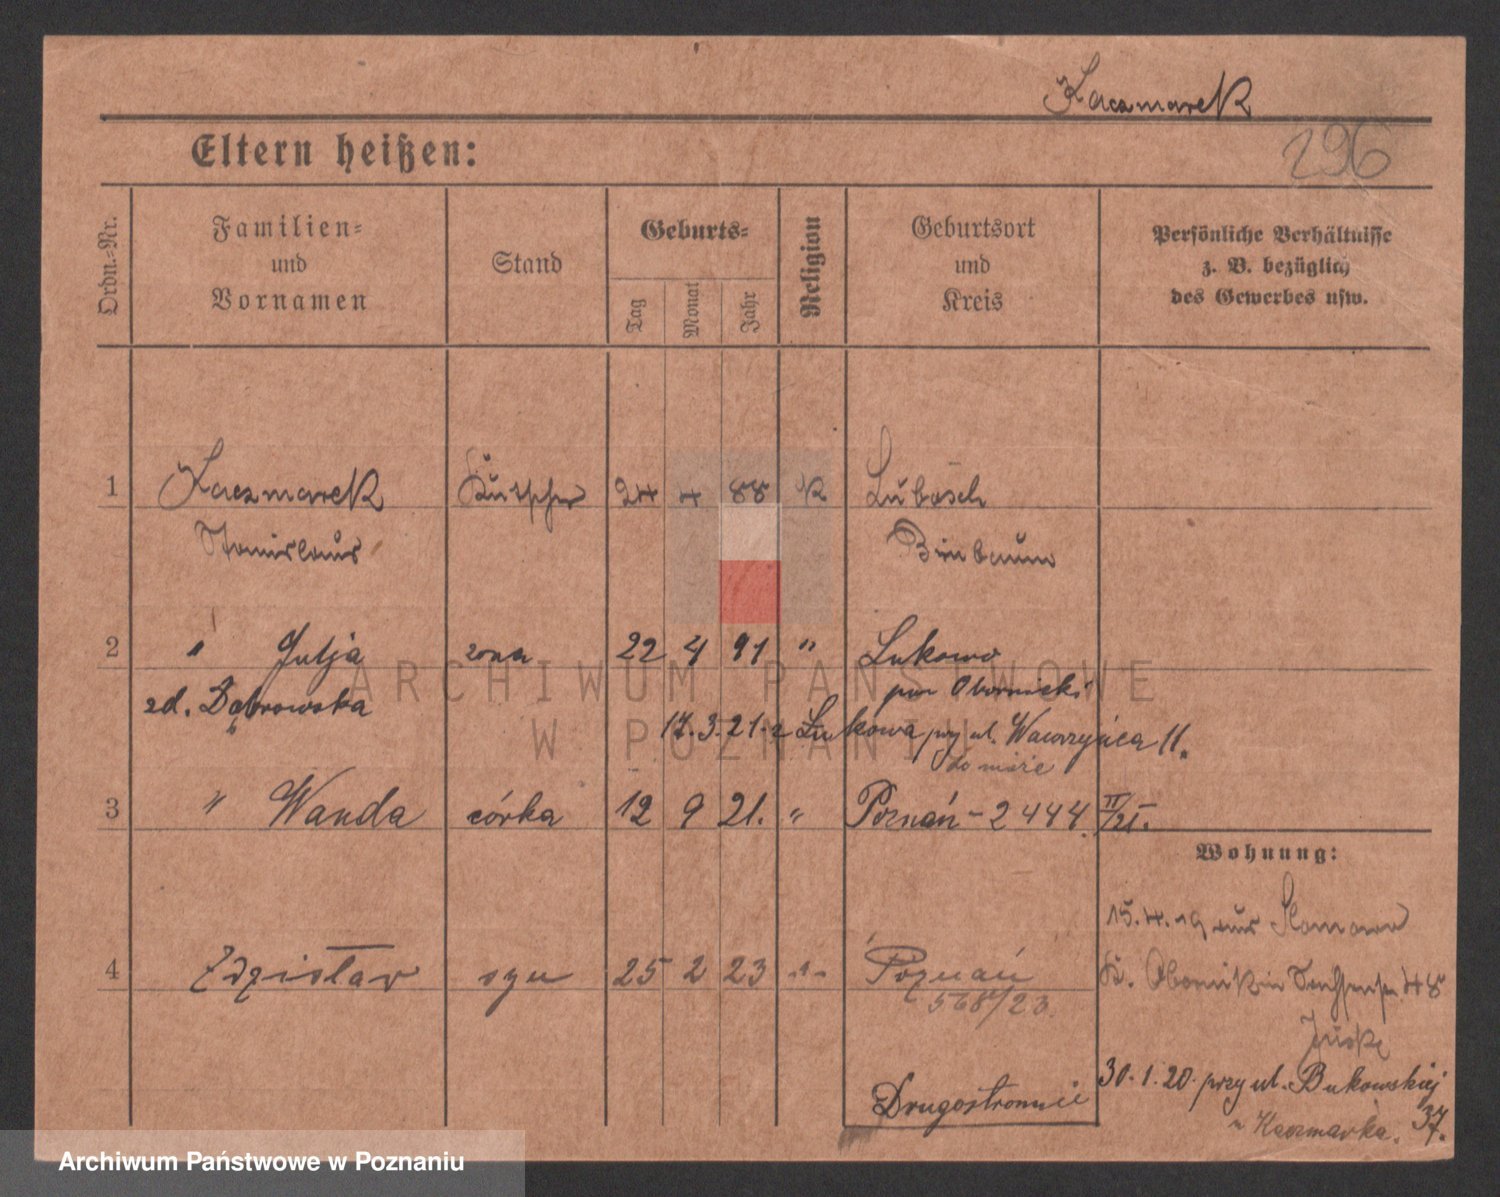 Kaczmarek
296
Eltern heißen:
Ordn.-Nr.
Familien- und Vornamen
Stand
Geburts-
Tag
Monat
Jahr
Religion
Geburtsort und Kreis
Persönliche Verhältnisse z. B. bezüglich des Gewerbes usw.
1 Kaczmarek Kutscher 24 4 88 K Lubosch
Stanislaus Birnbaum
2 " Julja żona 22 4 91 " Lukowo
zd. Dąbrowska pow Obornicki
17.3.21. z Lukowa przy ul. Wawrzyńca 11.
3 " Wanda córka 12 9 21. " Poznań - 2444 II/21.
Wohnung:
15.4.19 aus
4 Zdzisław syn 25 2 23 -"- Poznań
K. Obornik in 48
568/23.
30.1.20. przy ul. Bukowskiej
Drugostronnie
37.
u Kaczmarka.
ARCHIWUM PAŃSTWOWE
W POZNANIU
Archiwum Państwowe w Poznaniu